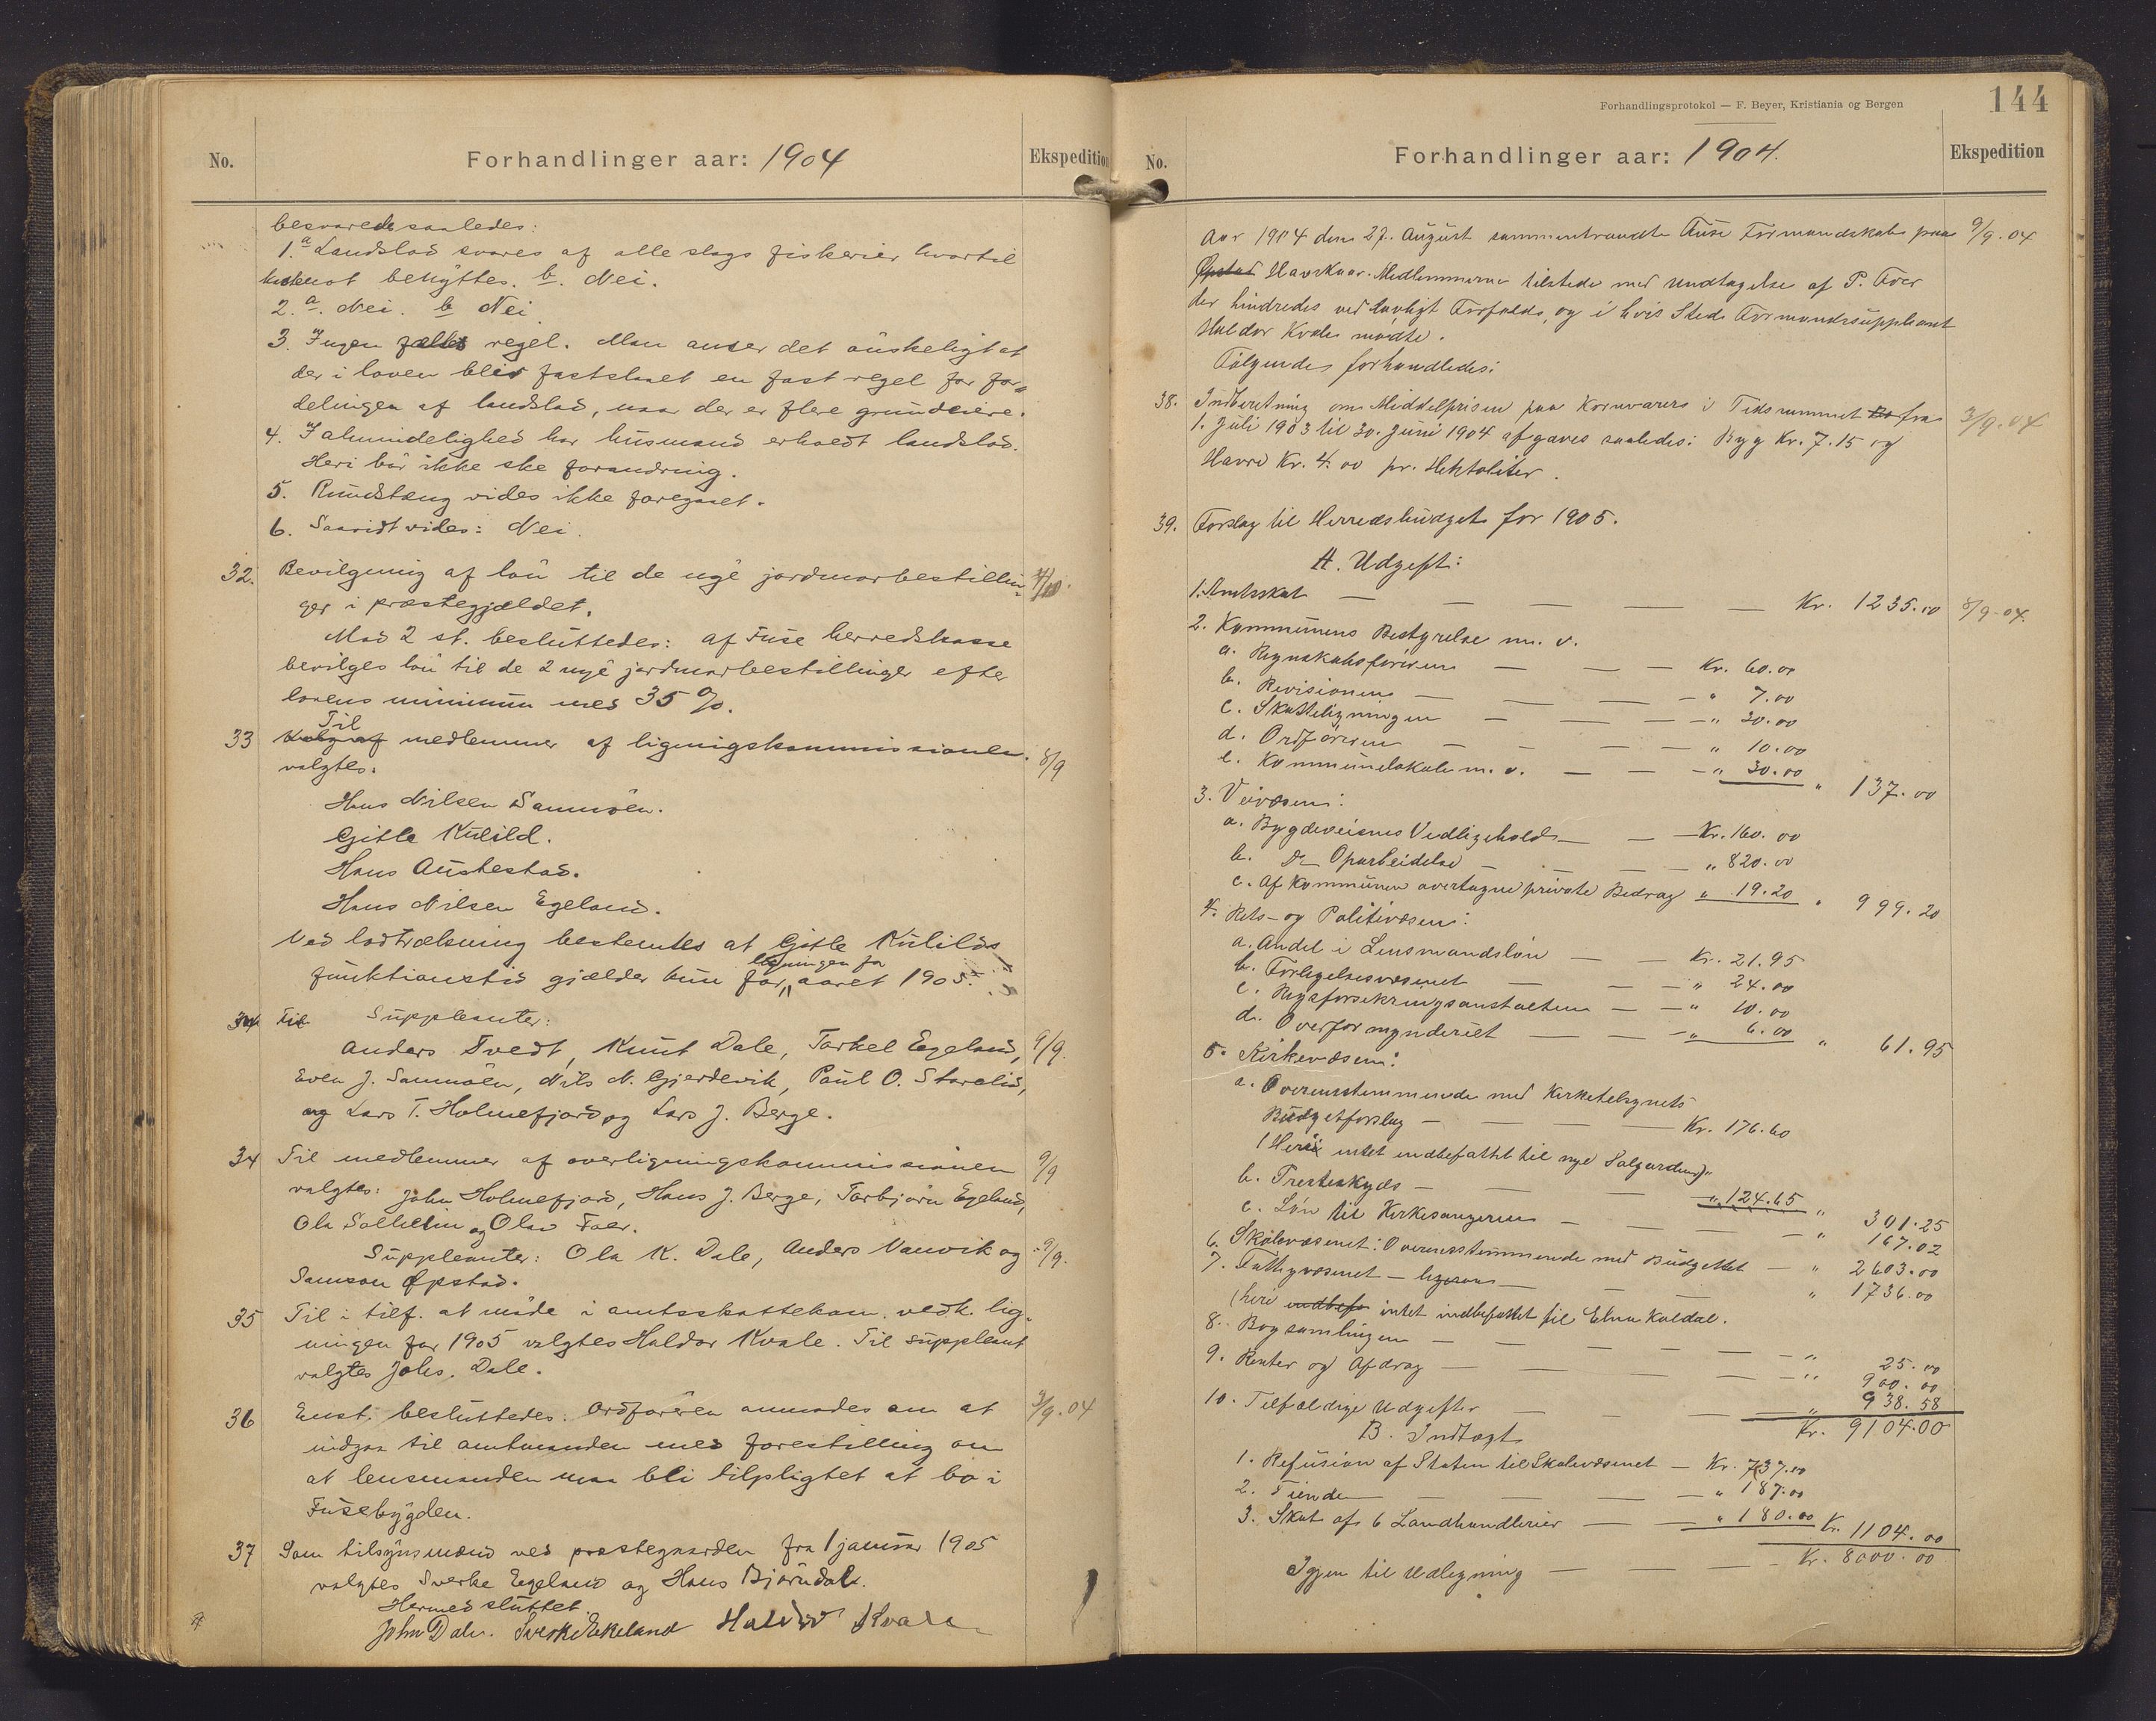 No.
Forhandlinger aar: 1904
Ekspedition
besvarede saaledes:
1. a Landslod svares af alle slags fiskerier hvortil
landnot benyttes. b. Nei.
2. a. Nei. b Nei.
3. Ingen regel. Man anser det ønskeligt at
der i loven blir fastslaaet en fast regel for for=
delingen af landslod, naar der er flere grundeiere.
4. I almindelighed har husmand erholdt landslod.
Heri bør ikke ske forandring.
5. Rundstæng vides ikke foregaaet.
6. Saavidt vides: Nei.
32. Bevilgning af løn til de nye jordmorbestillin=
ger i præstegjældet.
Mod 2 st. besluttedes: af Fuse herredskasse
bevilges løn til de 2 nye jordmorbestillinger efter
lovens minimum med 35 %.
33 Til medlemmer af ligningskommissionen 8/9
valgtes:
Hans Nilsen Samnøen.
Gitle Kulild.
Hans Austestad.
Hans Nilsen Egeland.
Ved lodtrækning bestemtes at Gitle Kulilds
funktionstid gjælder kun for ligningen for aaret 1905.
Suppleanter:
Anders Tvedt, Knut Dale, Torkel Egeland, 9/9.
Even J. Samnøen, Nils N. Gjerdevik, Paul O. Storelid,
og Lars T. Holmefjord og Lars J. Berge.
34 Til medlemmer af overligningskommissionen 9/9
valgtes: John Holmefjord, Hans J. Berge, Torbjørn Egeland,
Ola Solheim og Olav Foer.
Suppleanter: Ola K. Dale, Anders Vinnvik og 9/9.
Samson Øpstad.
35 Til i tilf. at møde i amtsskattekom. vedk. lig=
ningen for 1905 valgtes Haldor Kvale. Til suppleant
valgtes Johs. Dale.
36 Enst. besluttedes: Ordføreren anmodes om at 3/9.04
indgaa til amtmanden med forestilling om
at lensmanden maa bli tilpligtet at bo i
Fusebygden.
37 Som tilsynsmænd ved præstegaarden fra 1 januar 1905
valgtes Sverke Egeland og Hans Bjørndal.
Hermed sluttet.
John Dale. Sverke Ekeland Haldor Kvale
Forhandlingsprotokol — F. Beyer, Kristiania og Bergen
144
No.
Forhandlinger aar: 1904.
Ekspedition
Aar 1904 den 27. August sammentraadte Fuse Formandskab paa 9/9.04
Øpstad Havskaar. Medlemmerne tilstede med Undtagelse af P. Foer
der hindredes ved lovligt Forfald, og i hvis Sted Formandssuppleant
Haldor Kvale mødte.
Følgende forhandledes:
38. Indberetning om Middelprisen paa Kornvarer i Tidsrummet fra 3/9.04
1. Juli 1903 til 30. Juni 1904 afgaves saaledes: Byg Kr. 7.15 og
Havre Kr. 4.00 pr. Hektoliter.
39. Forslag til Herredsbudget for 1905.
A. Udgift:
1. Amtsskat — Kr. 1235.00 8/9-04.
2. Kommunens Bestyrelse m. v.
a. Regnskabsføreren — Kr. 60.00
b. Revisionen — " 7.00
c. Skatteligningen — " 30.00
d. Ordføreren — " 10.00
e. Kommunelokale m. v. — " 30.00 " 137.00
3. Veivæsen:
a. Bygdeveienes Vedligehold — Kr. 160.00
b. Do Oparbeidelse — " 820.00
c. Af Kommunen overtagne private Bidrag " 19.20 " 999.20
4. Rets- og Politivæsen:
a. Andel i Lensmandsløn — Kr. 21.95
b. Forligelsesvæsenet — " 24.00
c. Rigsforsikringsanstalten — " 10.00
d. Overformynderiet — " 6.00 " 61.95
5. Kirkevæsen:
a. Overensstemmende med Kirketilsynets
Budgetforslag — Kr. 176.60
(Heri intet indbefattet til nye Salgarden)
b. Presteskyds — " 124.65 " 301.25
c. Løn til Kirkesangeren — " 167.02
6. Skolevæsenet: Overensstemmende med Budgettet — " 2603.00
7. Fattigvæsenet — ligesaa — " 1736.00
(heri indbef intet indbefattet til Elna Koldal.
8. Bogsamlingen — " 25.00
9. Renter og Afdrag — " 900.00
10. Tilfældige Udgifter — " 938.58
Kr. 9104.00
B. Indtægt
1. Refusion af Staten til Skolevæsenet — Kr. 737.00
2. Tiende — " 187.00
3. Skat af 6 Landhandlerier — " 180.00 Kr. 1104.00
Igjen til Udligning — Kr. 8000.00